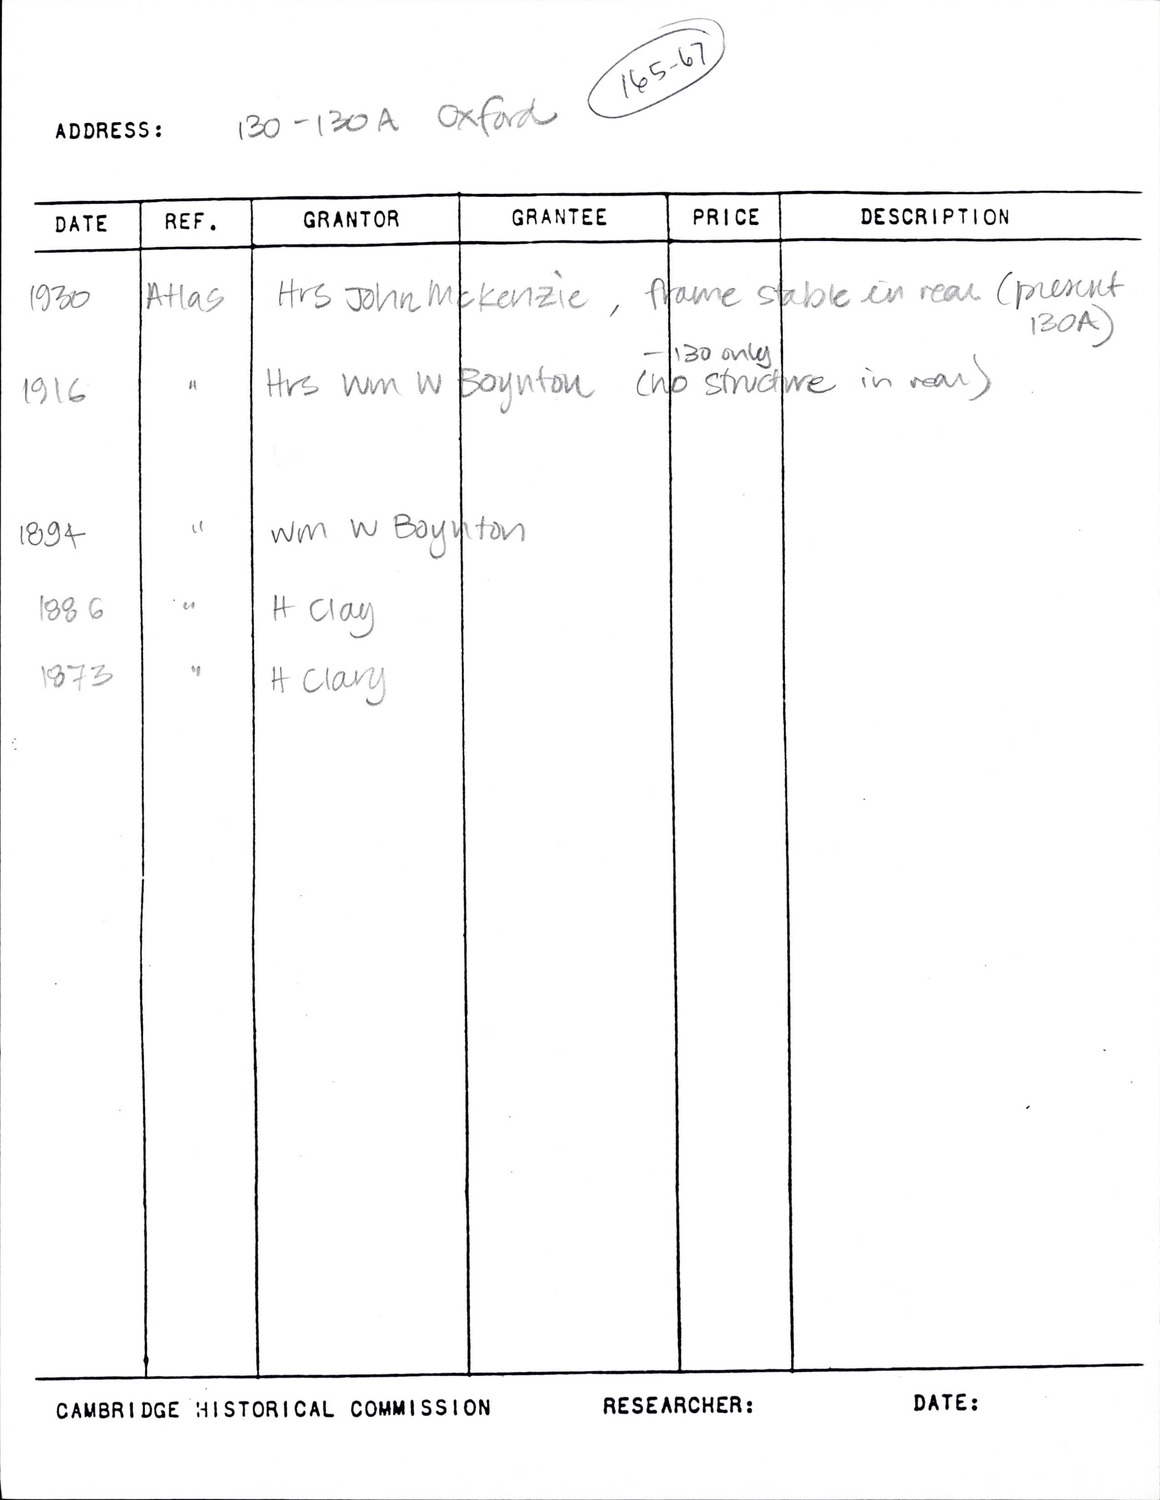 165-67
ADDRESS: 130-130A Oxford
DATE REF. GRANTOR GRANTEE PRICE DESCRIPTION
1930 Atlas Mrs John McKenzie, frame stable in rear (present
130A)
- 130 only
1916 " Mrs Wm W Boynton (no structure in rear)
1894 " Wm W Boynton
1886 " H Clay
1873 " H Clary
CAMBRIDGE HISTORICAL COMMISSION RESEARCHER: DATE: